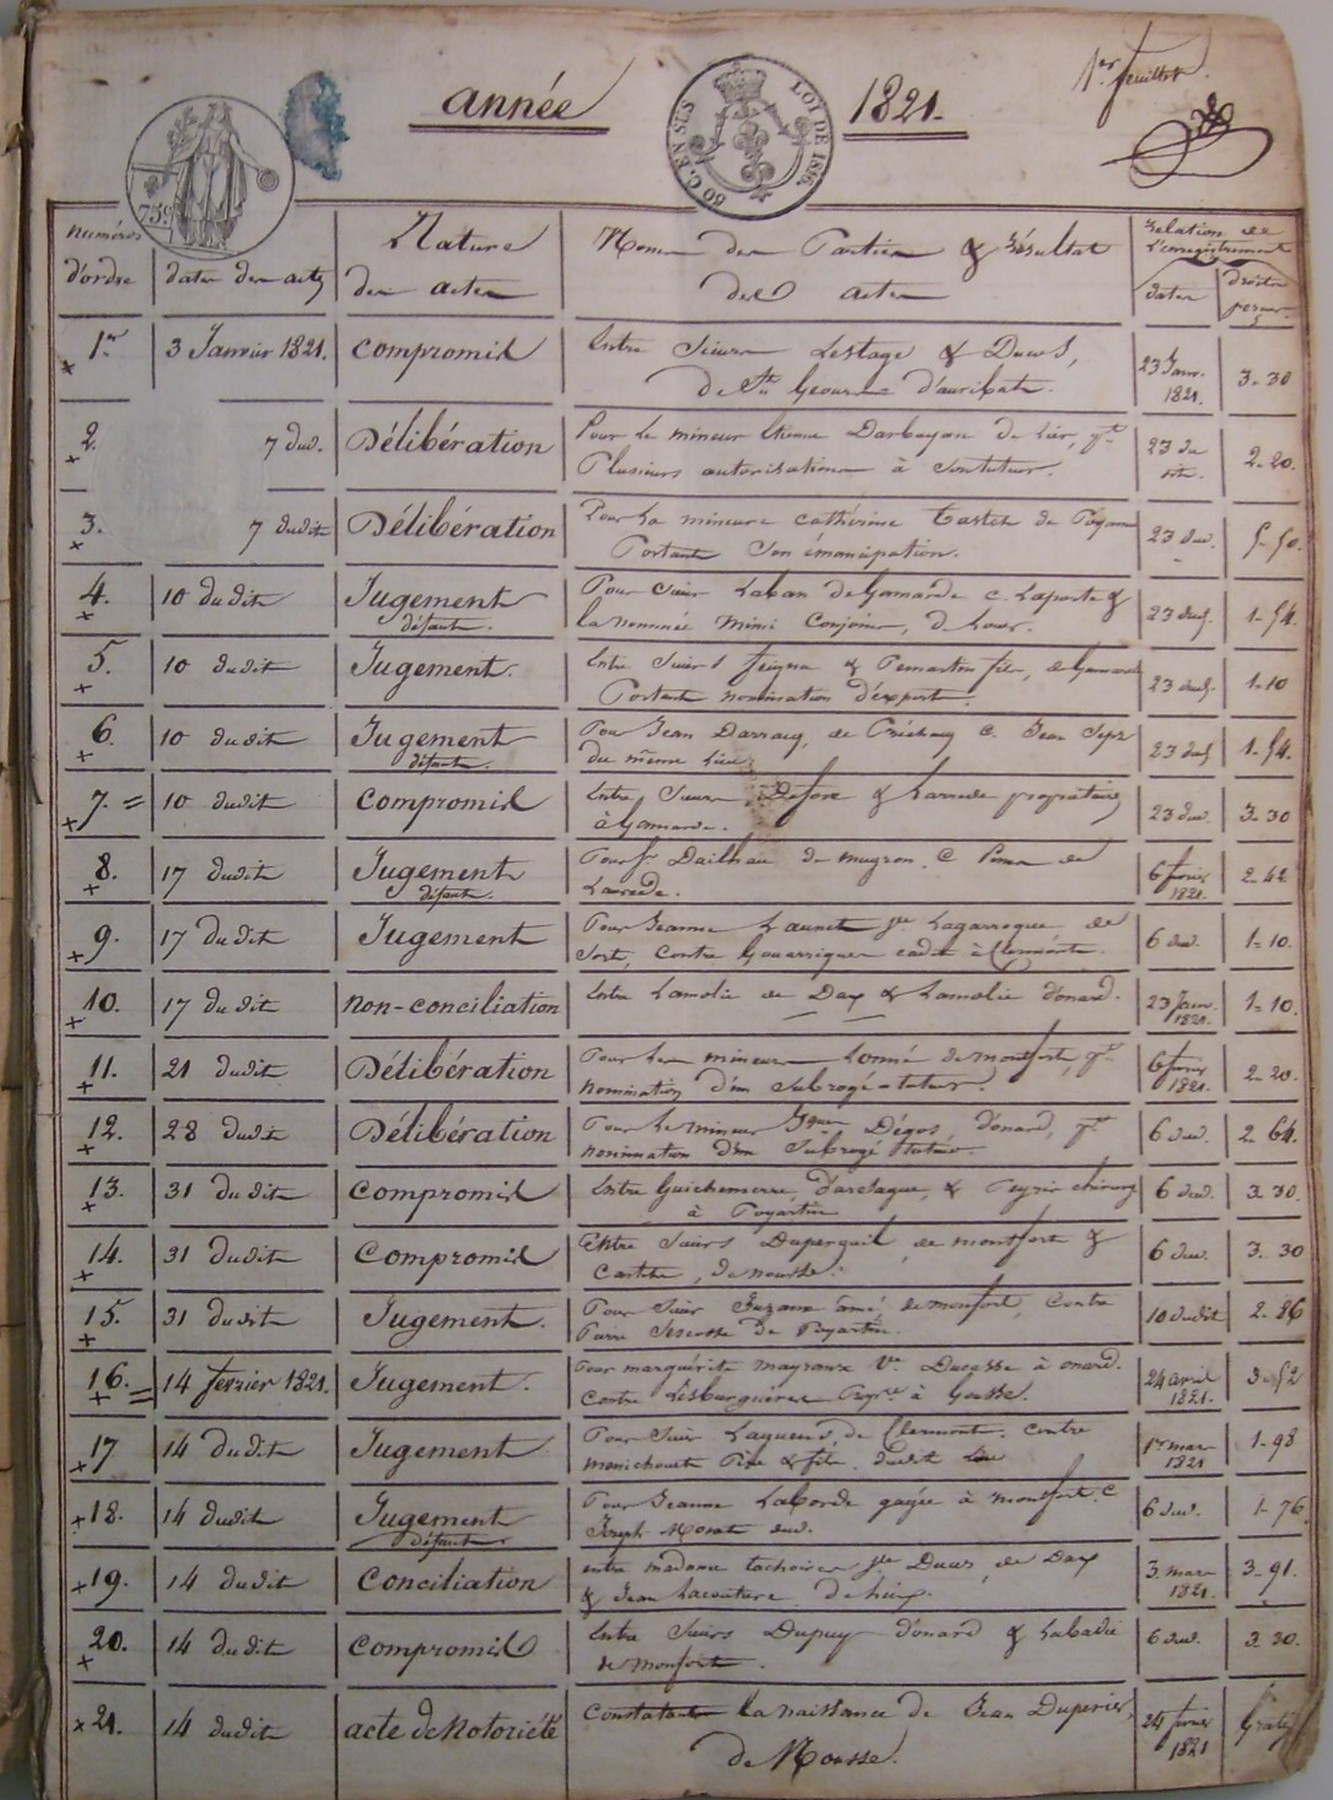 1er feuillet.
année 1821.
50 C. EN SUS
LOI DE 1816.
75c.
Numéros d'ordre
dates des actes
Nature des actes
Noms des Parties & Résultat des actes
Relation de l'enregistrement
dates
droits perçus
1er 3 Janvier 1821. Compromis Entre Sieurs Lestage & Ducos, 23 Janv. 1821. 3-30
de St. Geours d'auribat.
2. 7 dud. Délibération Pour le mineur Etienne Darbayan de Lier, pt 23 du dit. 2-20.
Plusieurs autorisations à son tuteur.
3. 7 dudit Délibération Pour la mineure Cathérine Tastet de Poyanne 23 dud. 5-50.
Portant son émancipation.
4. 10 dudit Jugement défaut. Pour Sieur Laban de Gamarde c. Laporte & 23 dud. 1-54.
la nommée Mimi Conjoints, de Louer.
5. 10 dudit Jugement. Entre Sieurs & Pemartin fils, de Gamarde 23 dud. 1-10
Portant nomination d'experts.
6. 10 dudit Jugement défaut. Pour Jean Darracq, de Préchacq c. Jean 23 dud 1-54.
du même lieu
7. = 10 dudit Compromis Entre Sieurs & Larrede propriétaires 23 dud. 3-30
à Gamarde.
8. 17 dudit Jugement défaut. Pour Sr. Dailhau de mugron. C de 6 février 1821. 2-42
Laurede.
9. 17 dudit Jugement Pour Jeanne Launet Lagarrogue de 6 dud. 1-10.
Sort, Contre cadet à Clermont.
10. 17 dudit Non-Conciliation Entre Lamolie de Dax & Lamolie d'onard. 23 Janv. 1821. 1-10.
11. 21 dudit Délibération Pour les mineurs Lonné de montfort, pt 6 février 1821. 2-20.
nomination d'un Subrogé-tuteur.
12. 28 dudit Délibération Pour le mineur Dégos, d'onard, pt 6 dud. 2-64.
nomination d'un Subrogé tuteur.
13. 31 dudit Compromis Entre Guichemerre, & Peyris 6 dud. 3-30.
à Poyartin
14. 31 dudit Compromis Entre Sieurs Duperguil, de montfort & 6 dud. 3.30
de nousse.
15. 31 dudit Jugement. Pour Sieur ainé de monfort, Contre 10 dudit 2-86
Pierre de Poyartin.
16. = 14 février 1821. Jugement. Pour marguérite mayraux Ve. Ducasse à onard. 24 avril 1821. 3-52
Contre à Gousse.
17 14 dudit Jugement Pour Sieur Laquens, de Clermont. Contre 1er mars 1821 1-98
Père & fils. dudit Lieu
18. 14 dudit Jugement défaut Pour Jeanne Laborde à montfort. C 6 dud. 1-76.
Joseph dud.
19. 14 dudit Conciliation entre madame Ducos, de Dax 3. mars 1821. 3-91.
& Jean Lacouture de hinx.
20. 14 dudit Compromis Entre Sieurs Dupuy d'onard & Labadie 6 dud. 3-30.
de Monfort.
21. 14 dudit acte de Notoriété Constatant la naissance de Jean Duperier, 24 février 1821 Gratis
de Nousse.